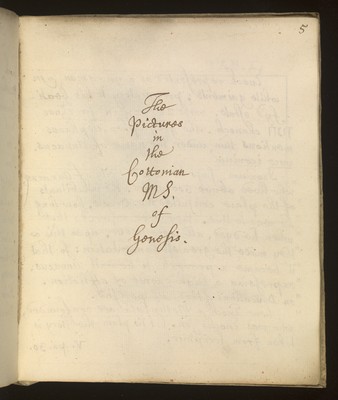 5
The
Pictures
in
the
Cottonian
MS.
of
Genesis.